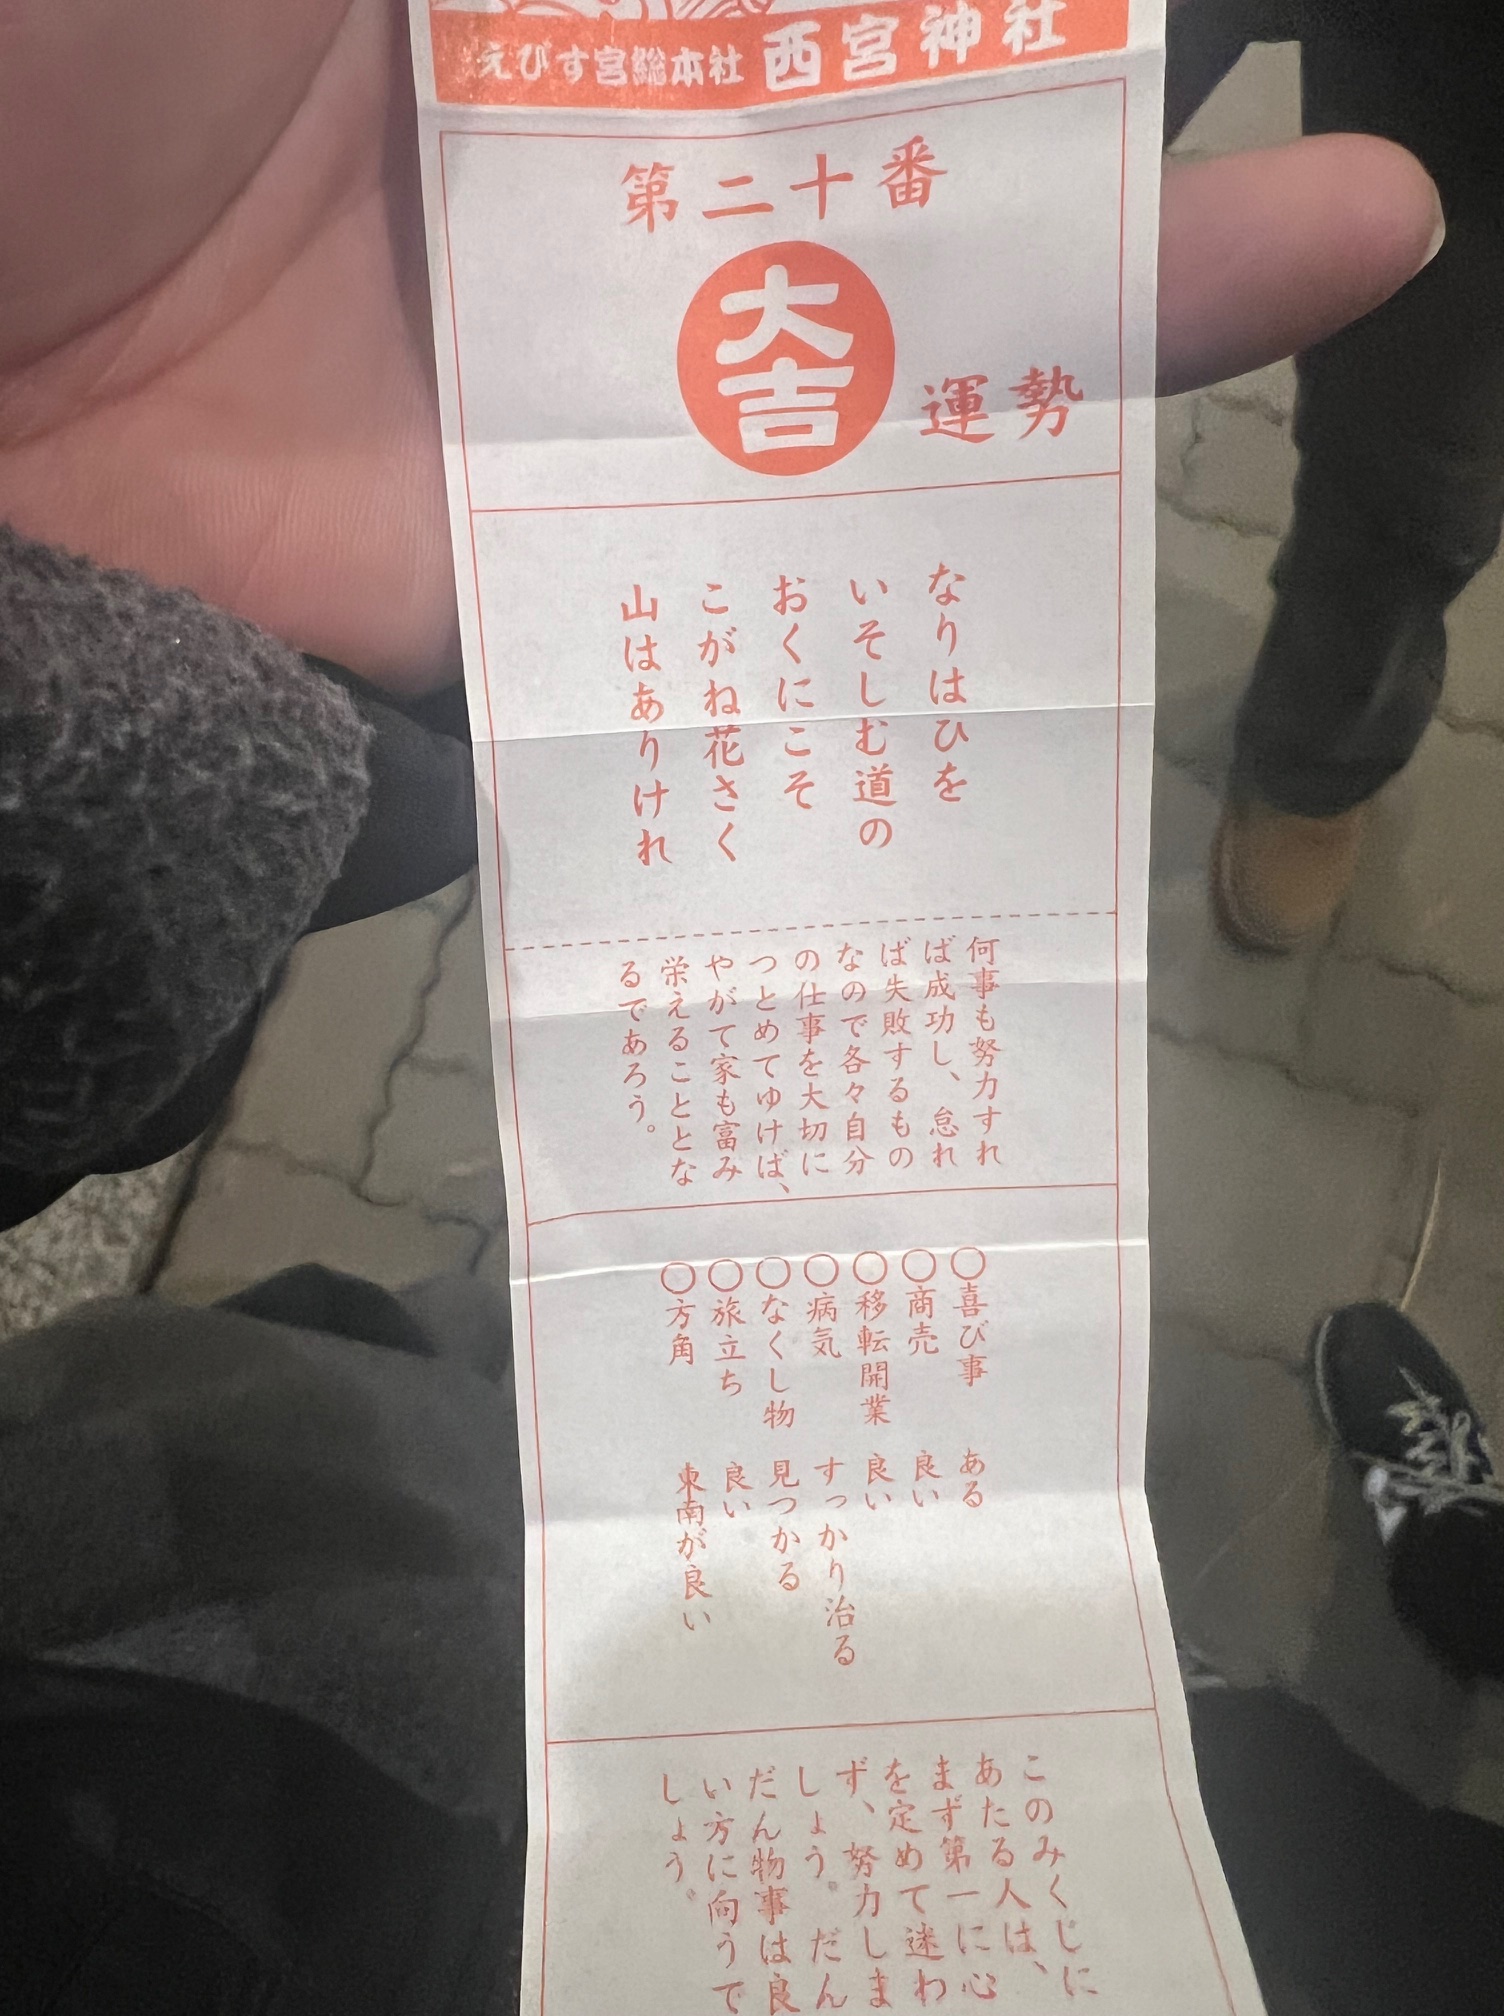 えびす宮総本社 西宮神社
第二十番
大吉
運勢
なりはひを
いそしむ道の
おくにこそ
こがね花さく
山はありけれ
何事も努力すれ
ば成功し、怠れ
ば失敗するもの
なので各々自分
の仕事を大切に
つとめてゆけば、
やがて家も富み
栄えることとな
るであろう。
○喜び事 ある
○商売 良い
○移転開業 良い
○病気 すっかり治る
○なくし物 見つかる
○旅立ち 良い
○方角 東南が良い
このみくじに
あたる人は、
まず第一に心
を定めて迷わ
ず、努力しま
しょう。だん
だん物事は良
い方に向うで
しょう。